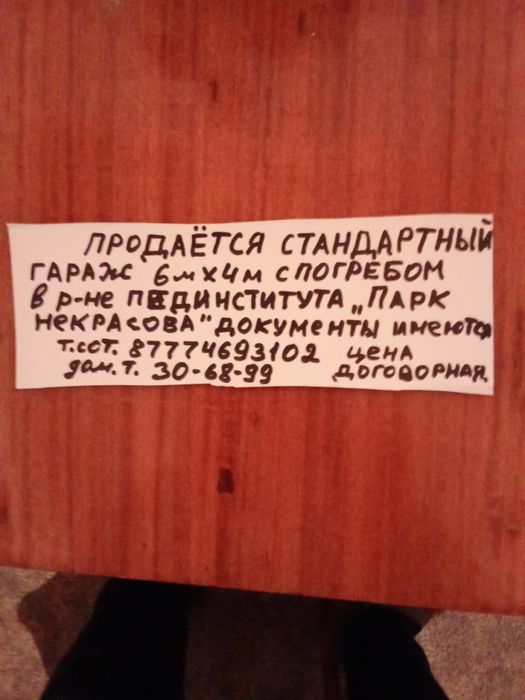 ПРОДАЁТСЯ СТАНДАРТНЫЙ
ГАРАЖ 6м х 4м С ПОГРЕБОМ
В Р-НЕ ПЕДИНСТИТУТА „ПАРК
НЕКРАСОВА" ДОКУМЕНТЫ ИМЕЮТСЯ
Т.СОТ. 87774693102 ЦЕНА
ДОМ. Т. 30-68-99 ДОГОВОРНАЯ.